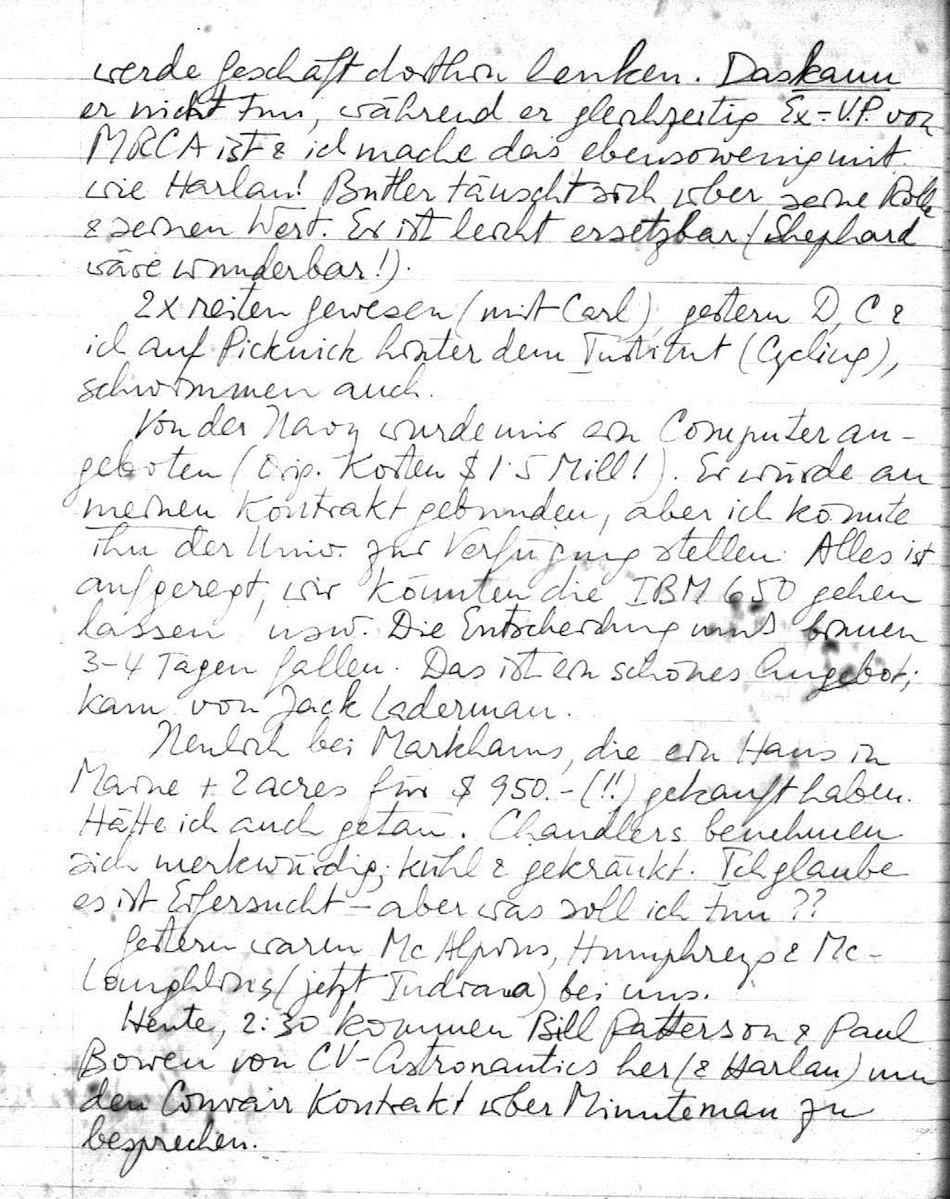 werde Geschäft dorthin lenken. Das kann
er nicht tun, während er gleichzeitig Ex-V.P. von
MRCA ist & ich mache das ebensowenig mit
wie Harlan! Butler täuscht sich über seine Rolle
& seinen Wert. Er ist leicht ersetzbar (Shephard
wäre wunderbar!).
2x reiten gewesen (mit Carl), gestern D, C &
ich auf Picknick hinter dem Institut (Cycling),
schwimmen auch.
Von der Navy wurde mir ein Computer an-
geboten (Orig. Kosten $ 1.5 Mill!). Er würde an
meinen Kontrakt gebunden, aber ich könnte
ihn der Univ. zur Verfügung stellen. Alles ist
aufgeregt, wir könnten die IBM 650 gehen
lassen usw. Die Entscheidung muss binnen
3-4 Tagen fallen. Das ist ein schönes Angebot;
kam von Jack Laderman.
Neulich bei Markhams, die ein Haus in
Maine + 2 acres für $ 950.- (!!) gekauft haben.
Hätte ich auch getan. Chandlers benehmen
sich merkwürdig; kühl & gekränkt. Ich glaube
es ist Eifersucht - aber was soll ich tun ??
Gestern waren McAlpins, Humphreys & Mc-
Loughlins (jetzt Indiana) bei uns.
Heute, 2:30 kommen Bill Patterson & Paul
Bowen von CV-Astronautics her (& Harlan) um
den Convair Kontrakt über Minuteman zu
besprechen.